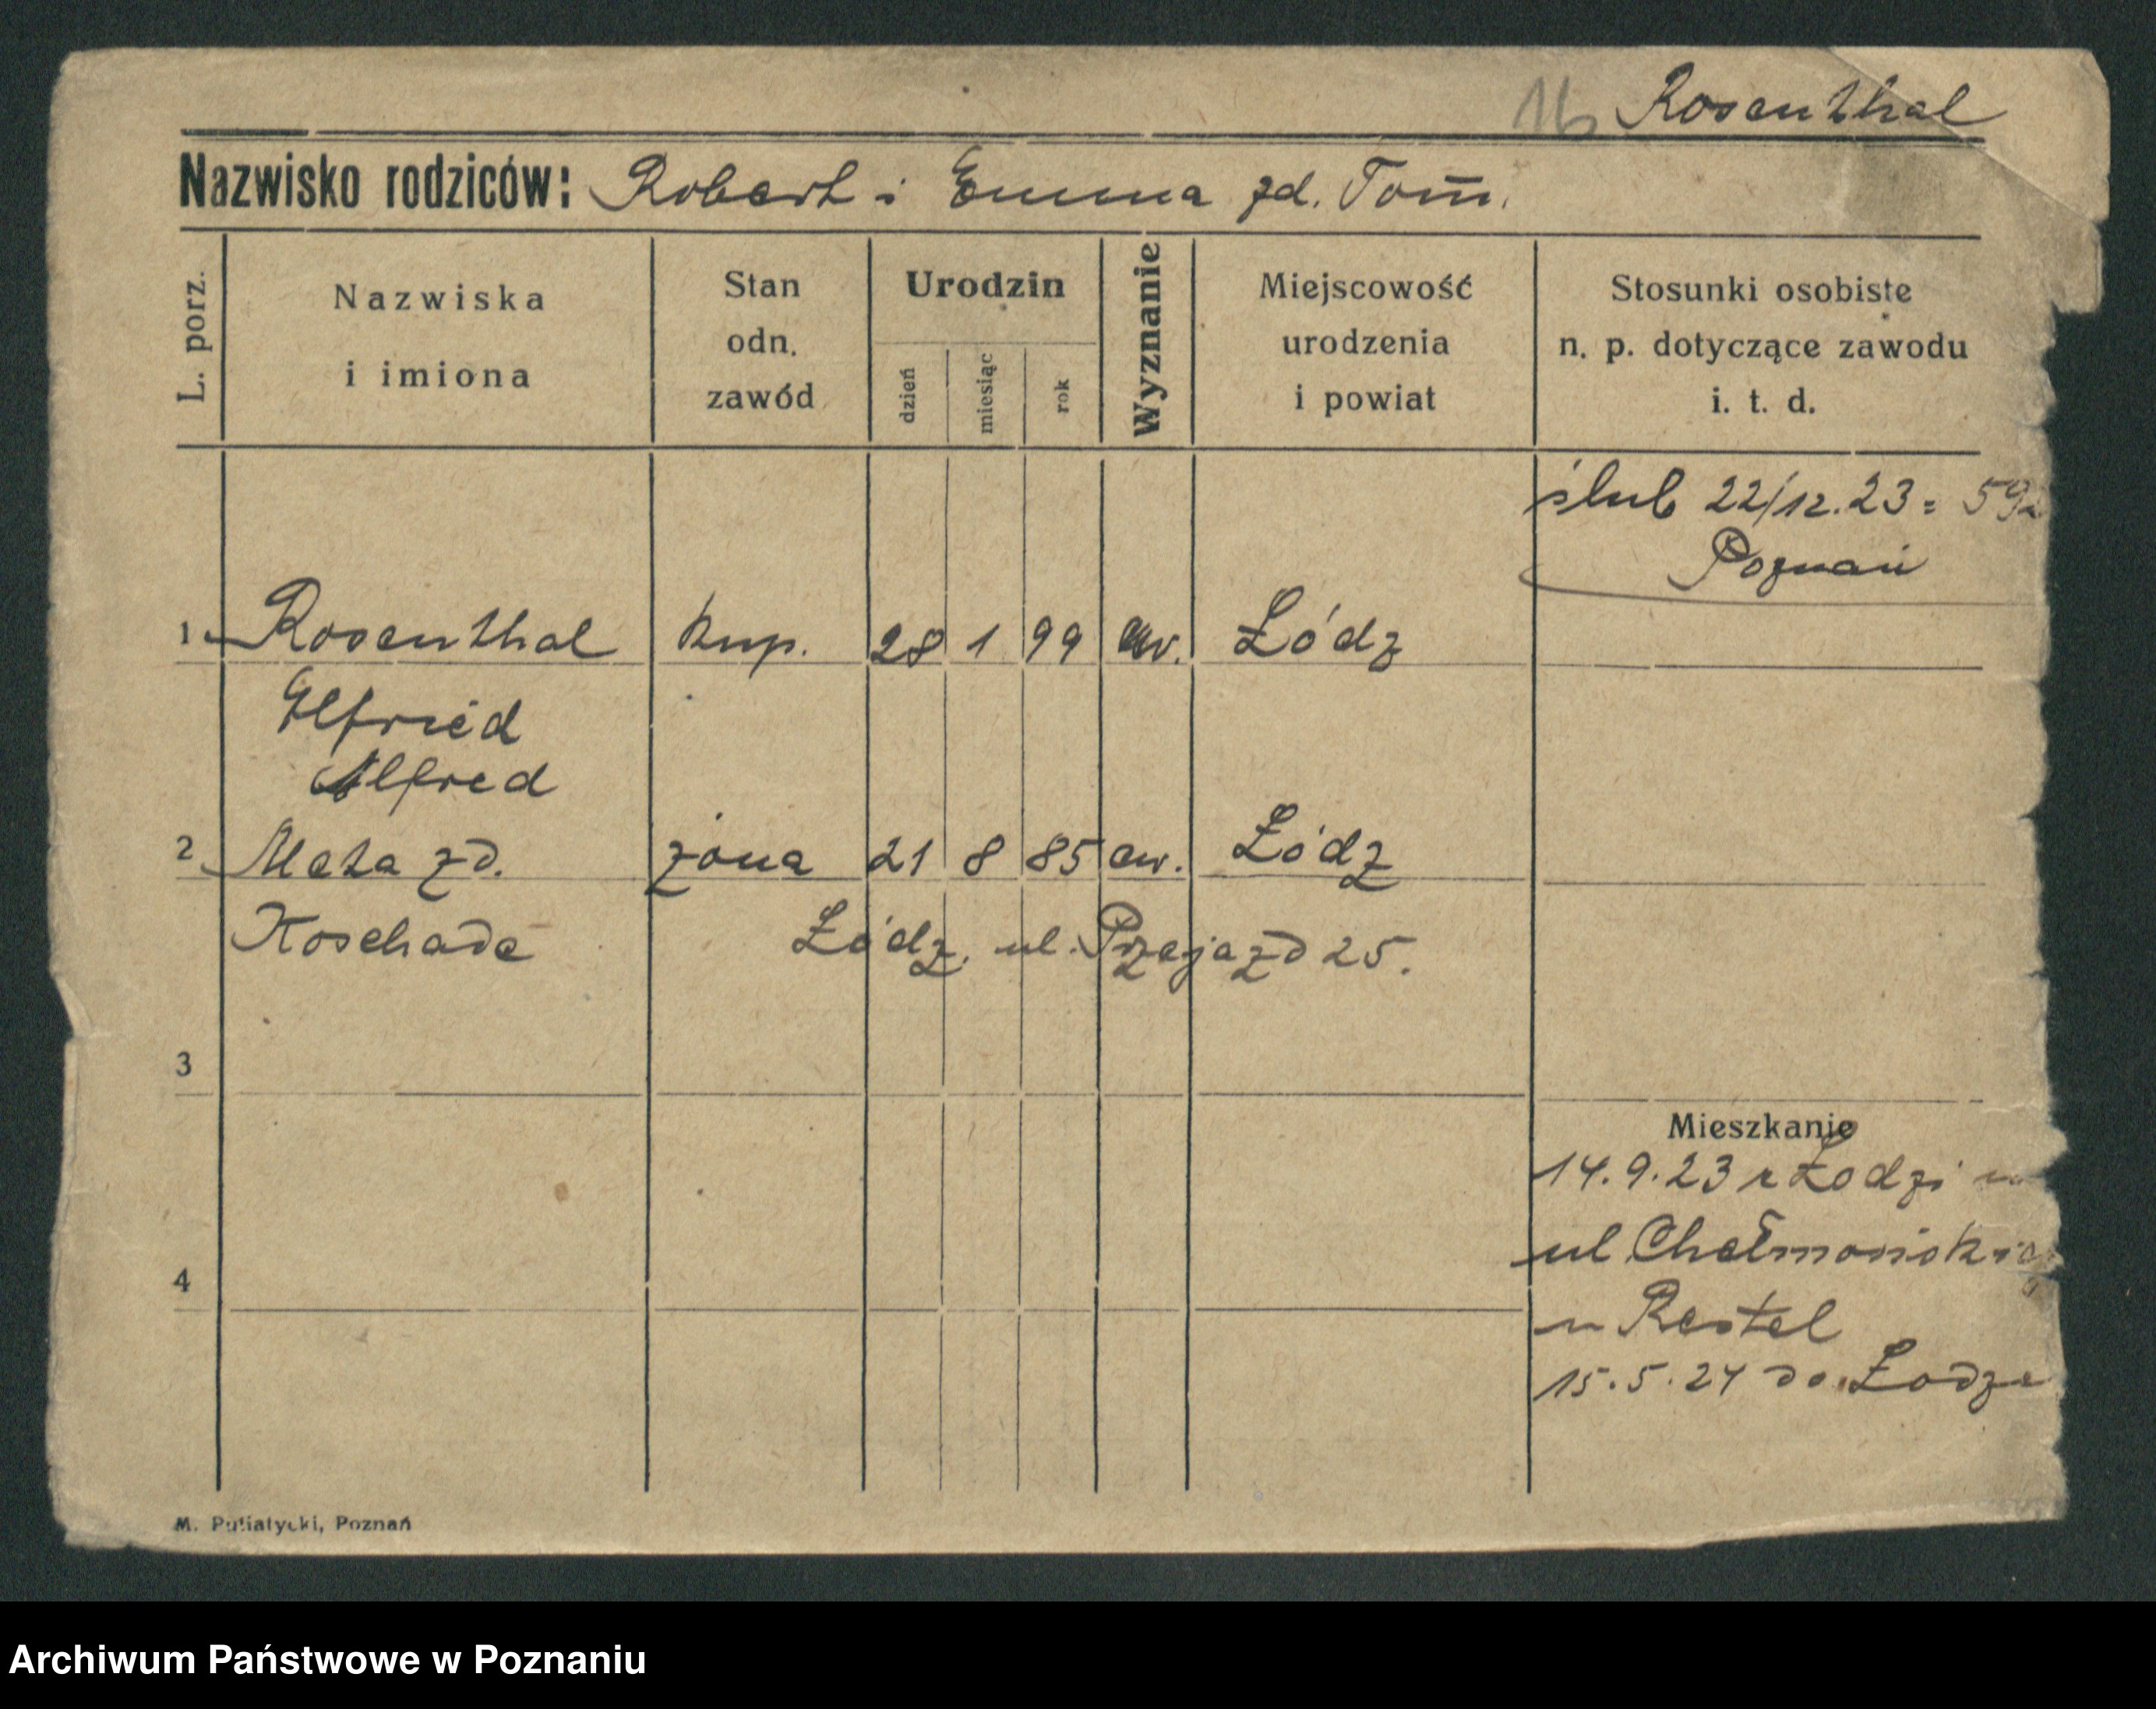 16 Rosenthal
Nazwisko rodziców: Robert i Emma zd. Tom̄.
L. porz.
Nazwiska
i imiona
Stan
odn.
zawód
Urodzin
dzień
miesiąc
rok
Wyznanie
Miejscowość
urodzenia
i powiat
Stosunki osobiste
n. p. dotyczące zawodu
i. t. d.
ślub 22/12.23 = 59
Poznań
1 Rosenthal kup. 28 1 99 ew. Łódz
Elfried
Alfred
2 Meta zd. żona 21 8 85 ew. Łódz
Koschade Łódz, ul. Przejazd 25.
3
Mieszkanie
14.9.23 z Łodzi
ul Chełmońskieg
4
u Restel
15.5.24 do Łodze
M. Putiatycki, Poznań
Archiwum Państwowe w Poznaniu